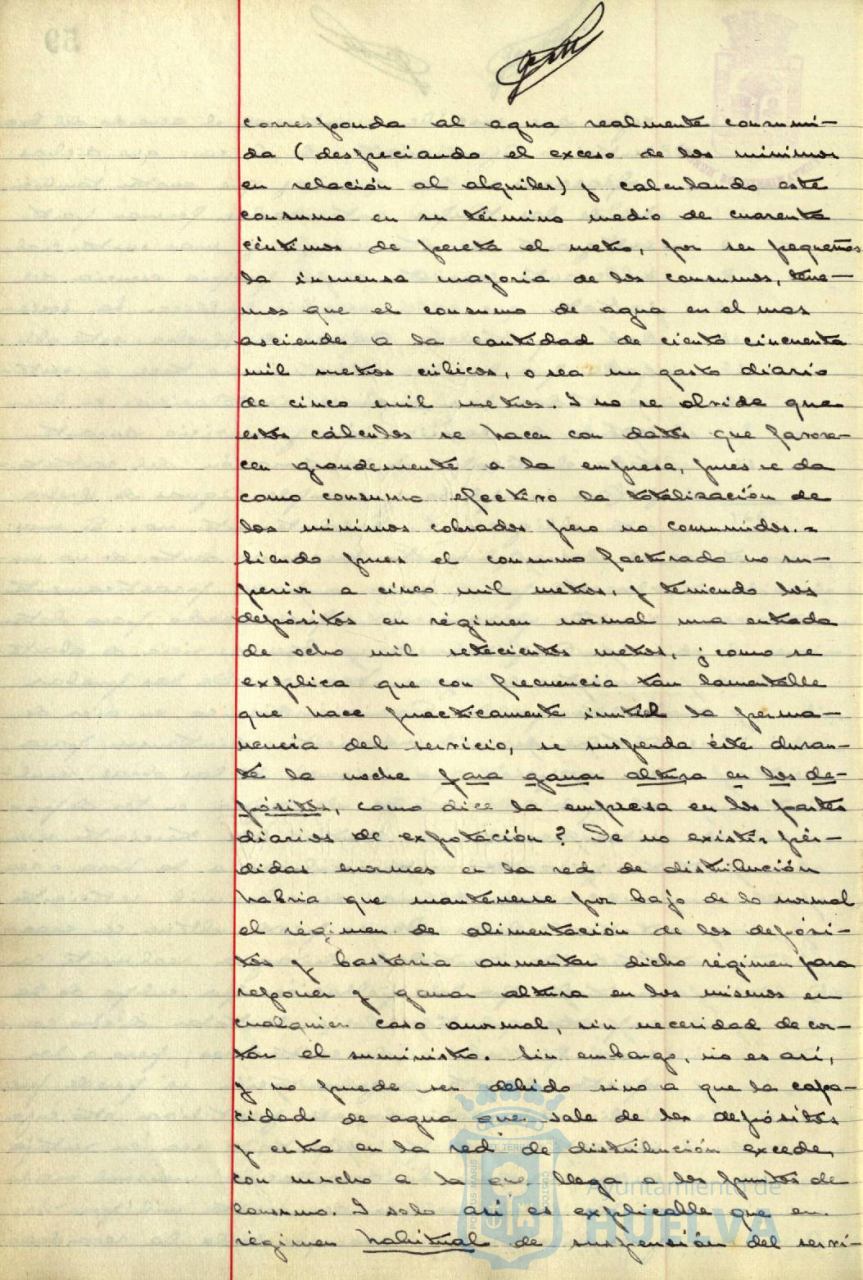 corresponda al agua realmente consumi-
da (despreciando el exceso de los mínimos
en relación al alquiler) y calculando este
consumo en su término medio de cuarenta
céntimos de peseta el metro, por ser pequeños
la inmensa mayoria de los consumos, tene-
mos que el consumo de agua en el mes
asciende a la cantidad de ciento cincuenta
mil metros cúbicos, o sea un gasto diario
de cinco mil metros. Y no se olvide que
estos cálculos se hacen con datos que favore-
cen grandemente a la empresa, pues se da
como consumo efectivo la totalización de
los mínimos cobrados pero no consumidos.=
Siendo pues el consumo facturado no su-
perior a cinco mil metros, y teniendo los
depósitos en régimen normal una entrada
de ocho mil setecientos metros, ¿como se
explica que con frecuencia tan lamentable
que hace practicamente inutil la perma-
nencia del servicio, se suspenda éste duran-
te la noche para ganar altura en los de-
pósitos, como dice la empresa en los partes
diarios de explotación? De no existir pér-
didas enormes en la red de distribución
habria que mantenerse por bajo de lo normal
el régimen de alimentación de los depósi-
tos y bastaria aumentar dicho régimen para
reponer y ganar altura en los mismos en
cualquier caso anormal, sin necesidad de cor-
tar el suministro. Sin embargo, no es asi,
y no puede ser debido sino a que la capa-
cidad de agua que sale de los depósitos
y entra en la red de distribución excede
con mucho a la que llega a los puntos de
consumo. Y solo asi es explicable que en
régimen habitual de suspensión del servi-
Ayuntamiento de
HUELVA